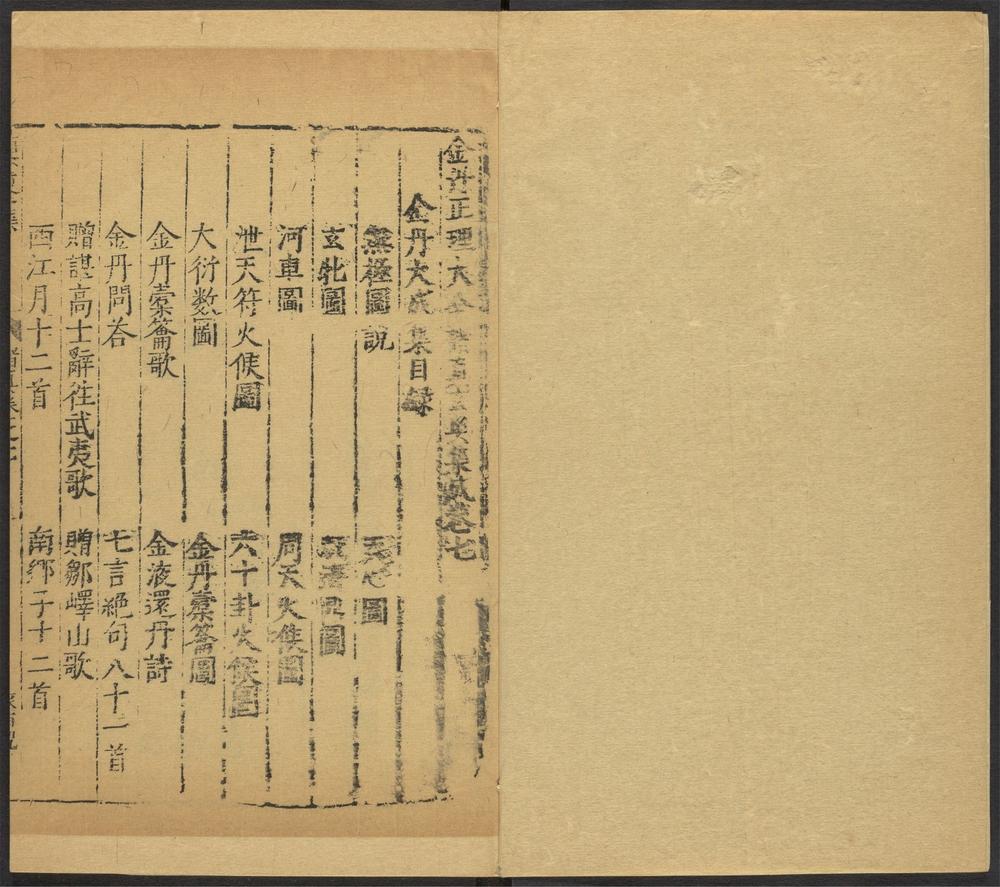 金丹正理大全諸真玄奧集成卷七
金丹大成集目録
無極圖說
天心圖
玄牝圖
圖
河車圖
周天火候圖
泄天符火候圖
六十卦火候圖
大衍數圖
金丹橐籥圖
金丹橐籥歌
金液還丹詩
金丹問荅
七言絶句八十一首
贈諶高士辭往武夷歌
贈鄒嶧山歌
西江月十二首
南鄉子十二首